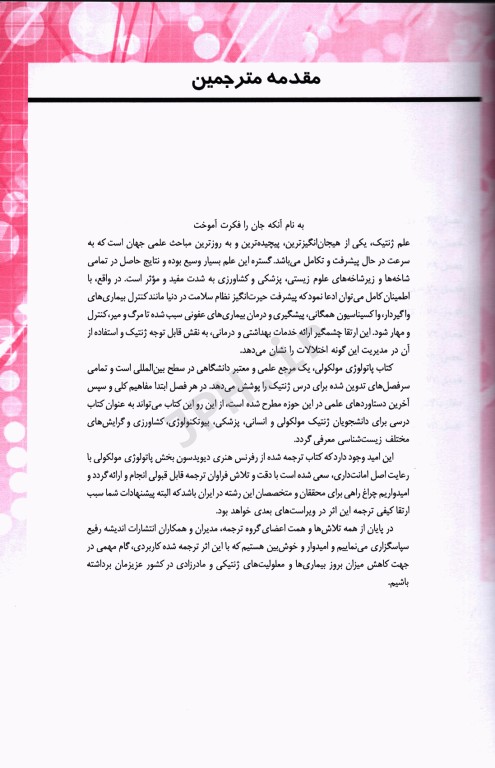 مقدمه مترجمین
به نام آنکه جان را فکرت آموخت
علم ژنتیک، یکی از هیجان‌انگیزترین، پیچیده‌ترین و به روزترین مباحث علمی جهان است که به
سرعت در حال پیشرفت و تکامل می‌باشد. گستره این علم بسیار وسیع بوده و نتایج حاصل در تمامی
شاخه‌ها و زیرشاخه‌های علوم زیستی، پزشکی و کشاورزی به شدت مفید و مؤثر است. در واقع، با
اطمینان کامل می‌توان ادعا نمود که پیشرفت حیرت‌انگیز نظام سلامت در دنیا مانند کنترل بیماری‌های
واگیردار، واکسیناسیون همگانی، پیشگیری و درمان بیماری‌های عفونی سبب شده تا مرگ و میر، کنترل
و مهار شود. این ارتقا چشمگیر ارائه خدمات بهداشتی و درمانی، به نقش قابل توجه ژنتیک و استفاده از
آن در مدیریت این گونه اختلالات را نشان می‌دهد.
کتاب پاتولوژی مولکولی، یک مرجع علمی و معتبر دانشگاهی در سطح بین‌المللی است و تمامی
سرفصل‌های تدوین شده برای درس ژنتیک را پوشش می‌دهد. در هر فصل ابتدا مفاهیم کلی و سپس
آخرین دستاوردهای علمی در این حوزه مطرح شده است، از این رو این کتاب می‌تواند به عنوان کتاب
درسی برای دانشجویان ژنتیک مولکولی و انسانی، پزشکی، بیوتکنولوژی، کشاورزی و گرایش‌های
مختلف زیست‌شناسی معرفی گردد.
این امید وجود دارد که کتاب ترجمه شده از رفرنس هنری دیویدسون بخش پاتولوژی مولکولی با
رعایت اصل امانت‌داری، سعی شده است با دقت و تلاش فراوان ترجمه قابل قبولی انجام و ارائه گردد و
امیدواریم چراغ راهی برای محققان و متخصصان این رشته در ایران باشد که البته پیشنهادات شما سبب
ارتقا کیفی ترجمه این اثر در ویراست‌های بعدی خواهد بود.
در پایان از همه تلاش‌ها و همت اعضای گروه ترجمه، مدیران و همکاران انتشارات اندیشه رفیع
سپاسگزاری می‌نماییم و امیدوار و خوش‌بین هستیم که با این اثر ترجمه شده کاربردی، گام مهمی در
جهت کاهش میزان بروز بیماری‌ها و معلولیت‌های ژنتیکی و مادرزادی در کشور عزیزمان برداشته
باشیم.